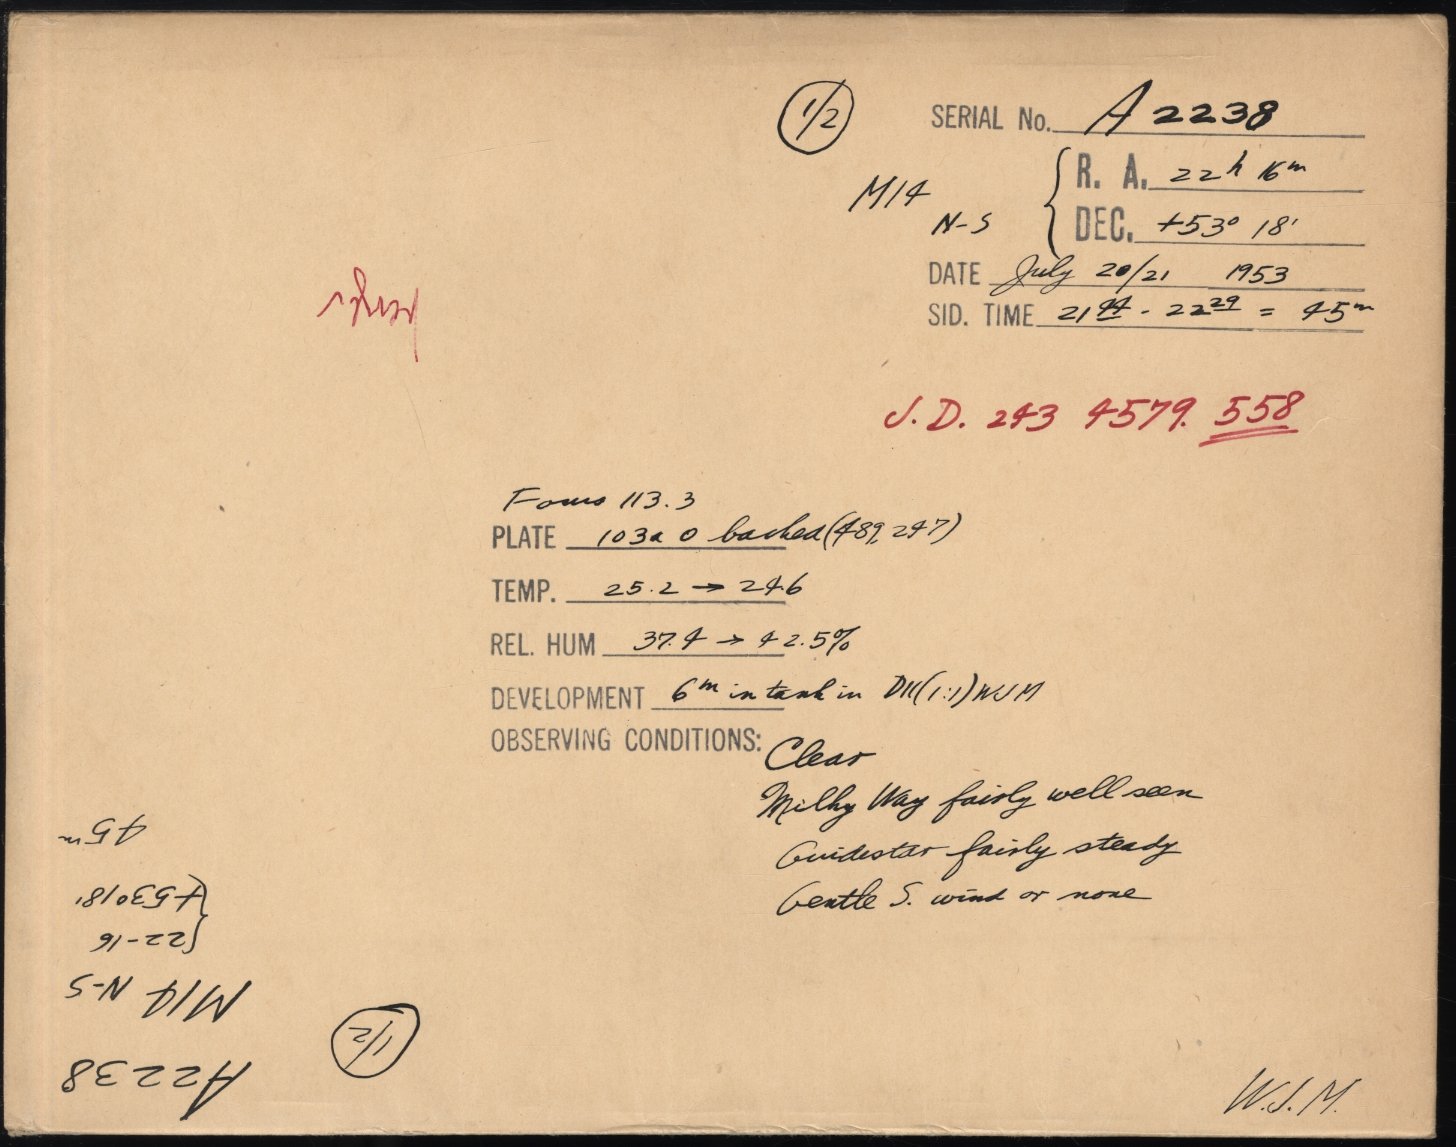 1/2
SERIAL No. A 2238
M14 N-S { R. A. 22h 16m
DEC. +53° 18'
DATE July 20/21 1953
SID. TIME 21 44 - 22 29 = 45m
J.D. 243 4579.558
Focus 113.3
PLATE 103a O backed (489, 247)
TEMP. 25.2 → 24.6
REL. HUM 37.4 → 42.5%
DEVELOPMENT 6m in tank in D11(1:1) WJM
OBSERVING CONDITIONS: Clear
Milky Way fairly well seen
Guidestar fairly steady
Gentle S. wind or none
W.J.M.
1/2
A2238
M14 N-S
{ 22-16
+53°18'
45m